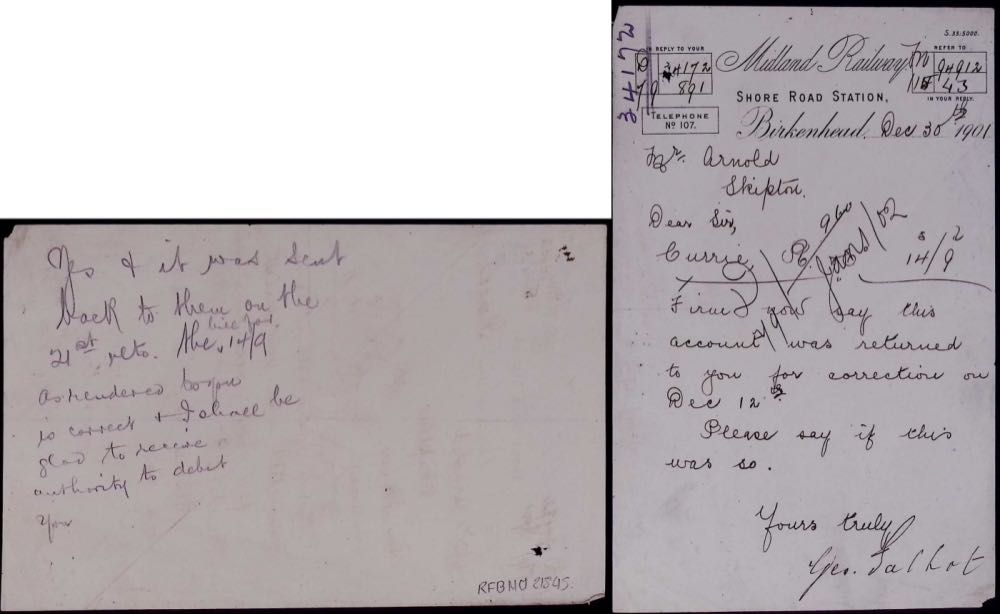 Yes & it was sent
back to them on the
21st ulto. The bill for 14/9
as rendered to you
is correct & I shall be
glad to receive
authority to debit
you
RFBNO 21345.
34172
S.33:5000.
IN REPLY TO YOUR
D 34172
79 891
TELEPHONE
No 107.
Midland Railway
SHORE ROAD STATION,
Birkenhead, Dec 30 1901
REFER TO
94912
43
IN YOUR REPLY.
Mr. Arnold
Skipton.
Dear Sir,
Currie
14/9
Firm now say this
account was returned
to you for correction on
Dec 12th
Please say if this
was so.
Yours truly
Geo. Talbot